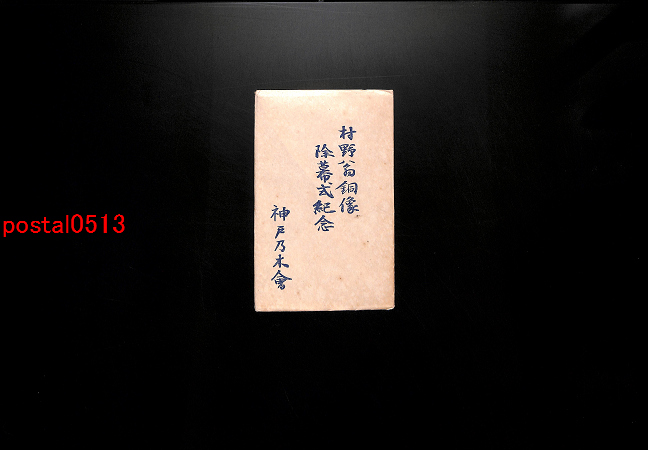 村野翁銅像
除幕式紀念
神戸乃木會
postal0513